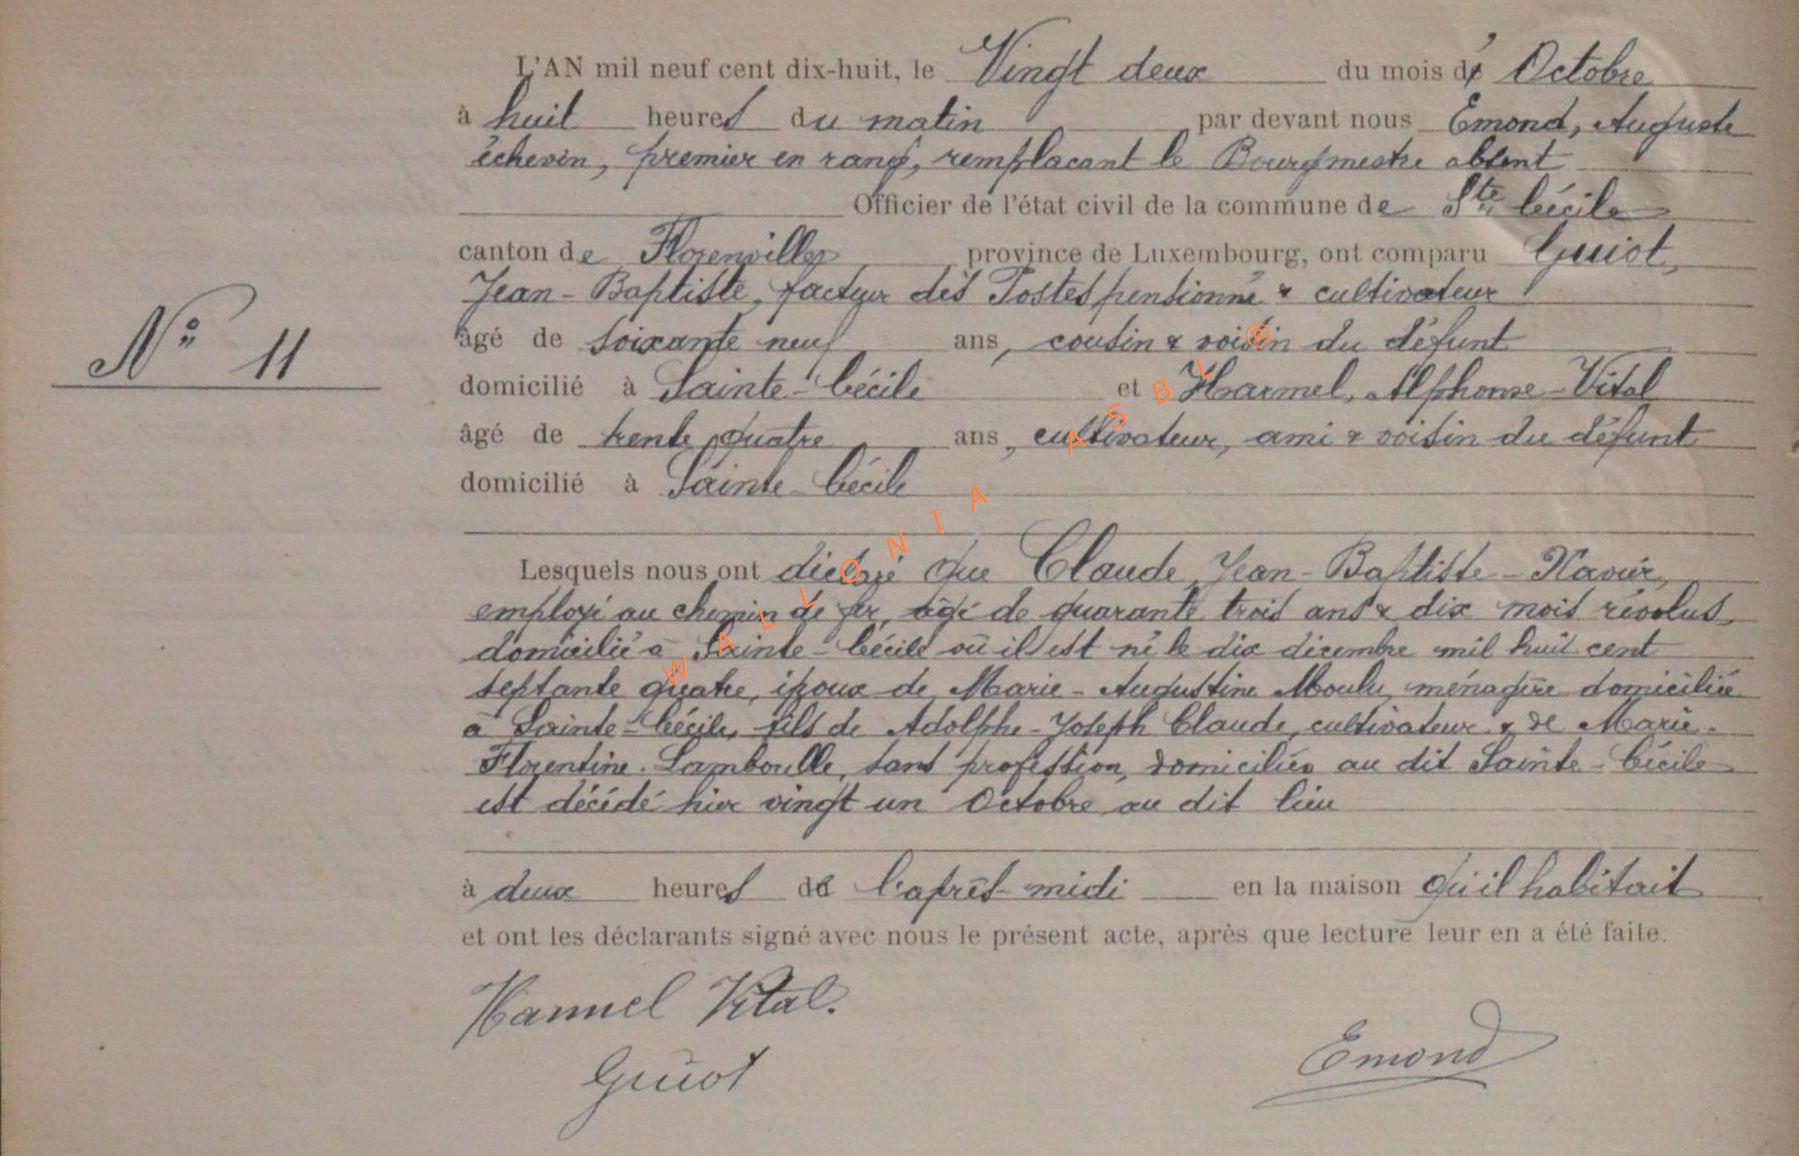 L'AN mil neuf cent dix-huit, le Vingt deux du mois d' Octobre
à huit heures du matin par devant nous Emond, Auguste
échevin, premier en rang, remplacant le Bourgmestre absent
Officier de l'état civil de la commune de Ste Cécile
canton de Florenville province de Luxembourg, ont comparu Guiot,
Jean-Baptiste, facteur des Postes pensionné & cultivateur
N° 11
âgé de soixante neuf ans, cousin & voisin du défunt
domicilié à Sainte-Cécile et Harmel, Alphonse-Vital
âgé de trente quatre ans, cultivateur, ami & voisin du défunt
domicilié à Sainte-Cécile
Lesquels nous ont déclaré que Claude, Jean-Baptiste-Xavier,
employé au chemin de fer, âgé de quarante trois ans & dix mois révolus,
domicilié à Sainte-Cécile où il est né le dix décembre mil huit cent
septante quatre, époux de Marie-Augustine Moulu, ménagère domiciliée
à Sainte-Cécile, fils de Adolphe-Joseph Claude, cultivateur & de Marie-
Florentine Lamboulle, sans profession, domiciliés au dit Sainte-Cécile
est décédé hier vingt un Octobre au dit lieu
à deux heures de l'après-midi en la maison qu'il habitait
et ont les déclarants signé avec nous le présent acte, après que lecture leur en a été faite.
Harmel Vital.
Guiot
Emond
WALLONIA ASBL ®